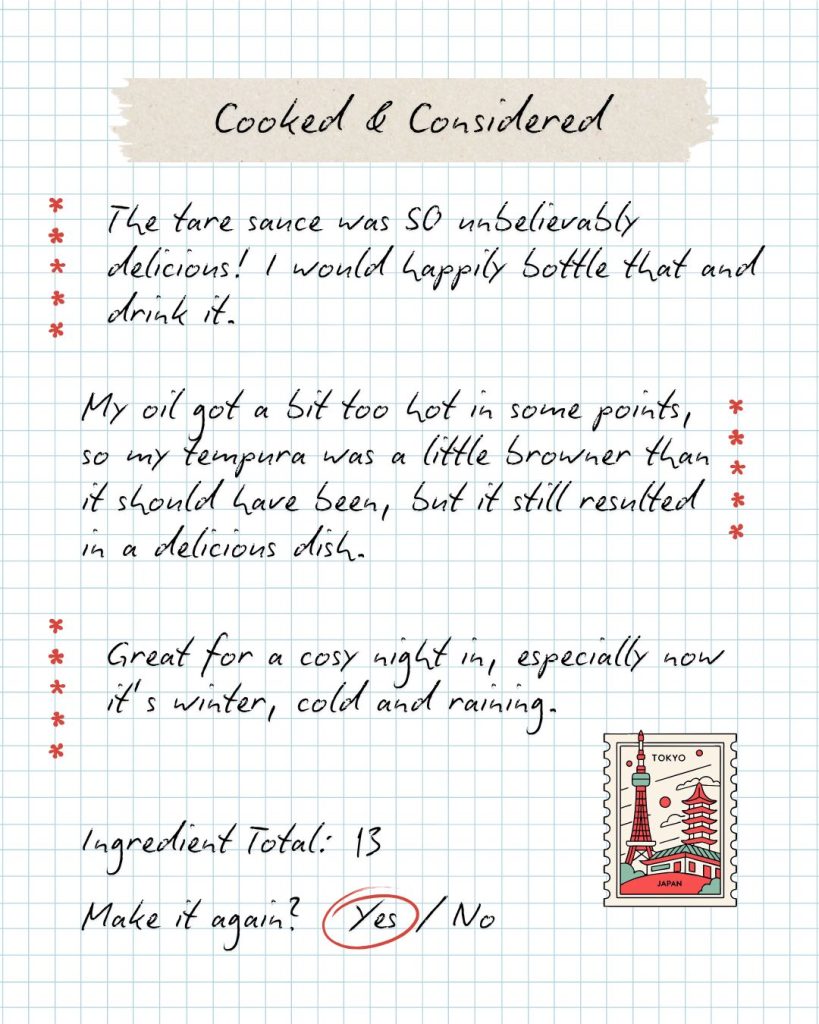 Cooked & Considered
The tare sauce was SO unbelievably
delicious! I would happily bottle that and
drink it.
My oil got a bit too hot in some points,
so my tempura was a little browner than
it should have been, but it still resulted
in a delicious dish.
Great for a cosy night in, especially now
it's winter, cold and raining.
TOKYO
JAPAN
Ingredient Total: 13
Make it again? Yes / No